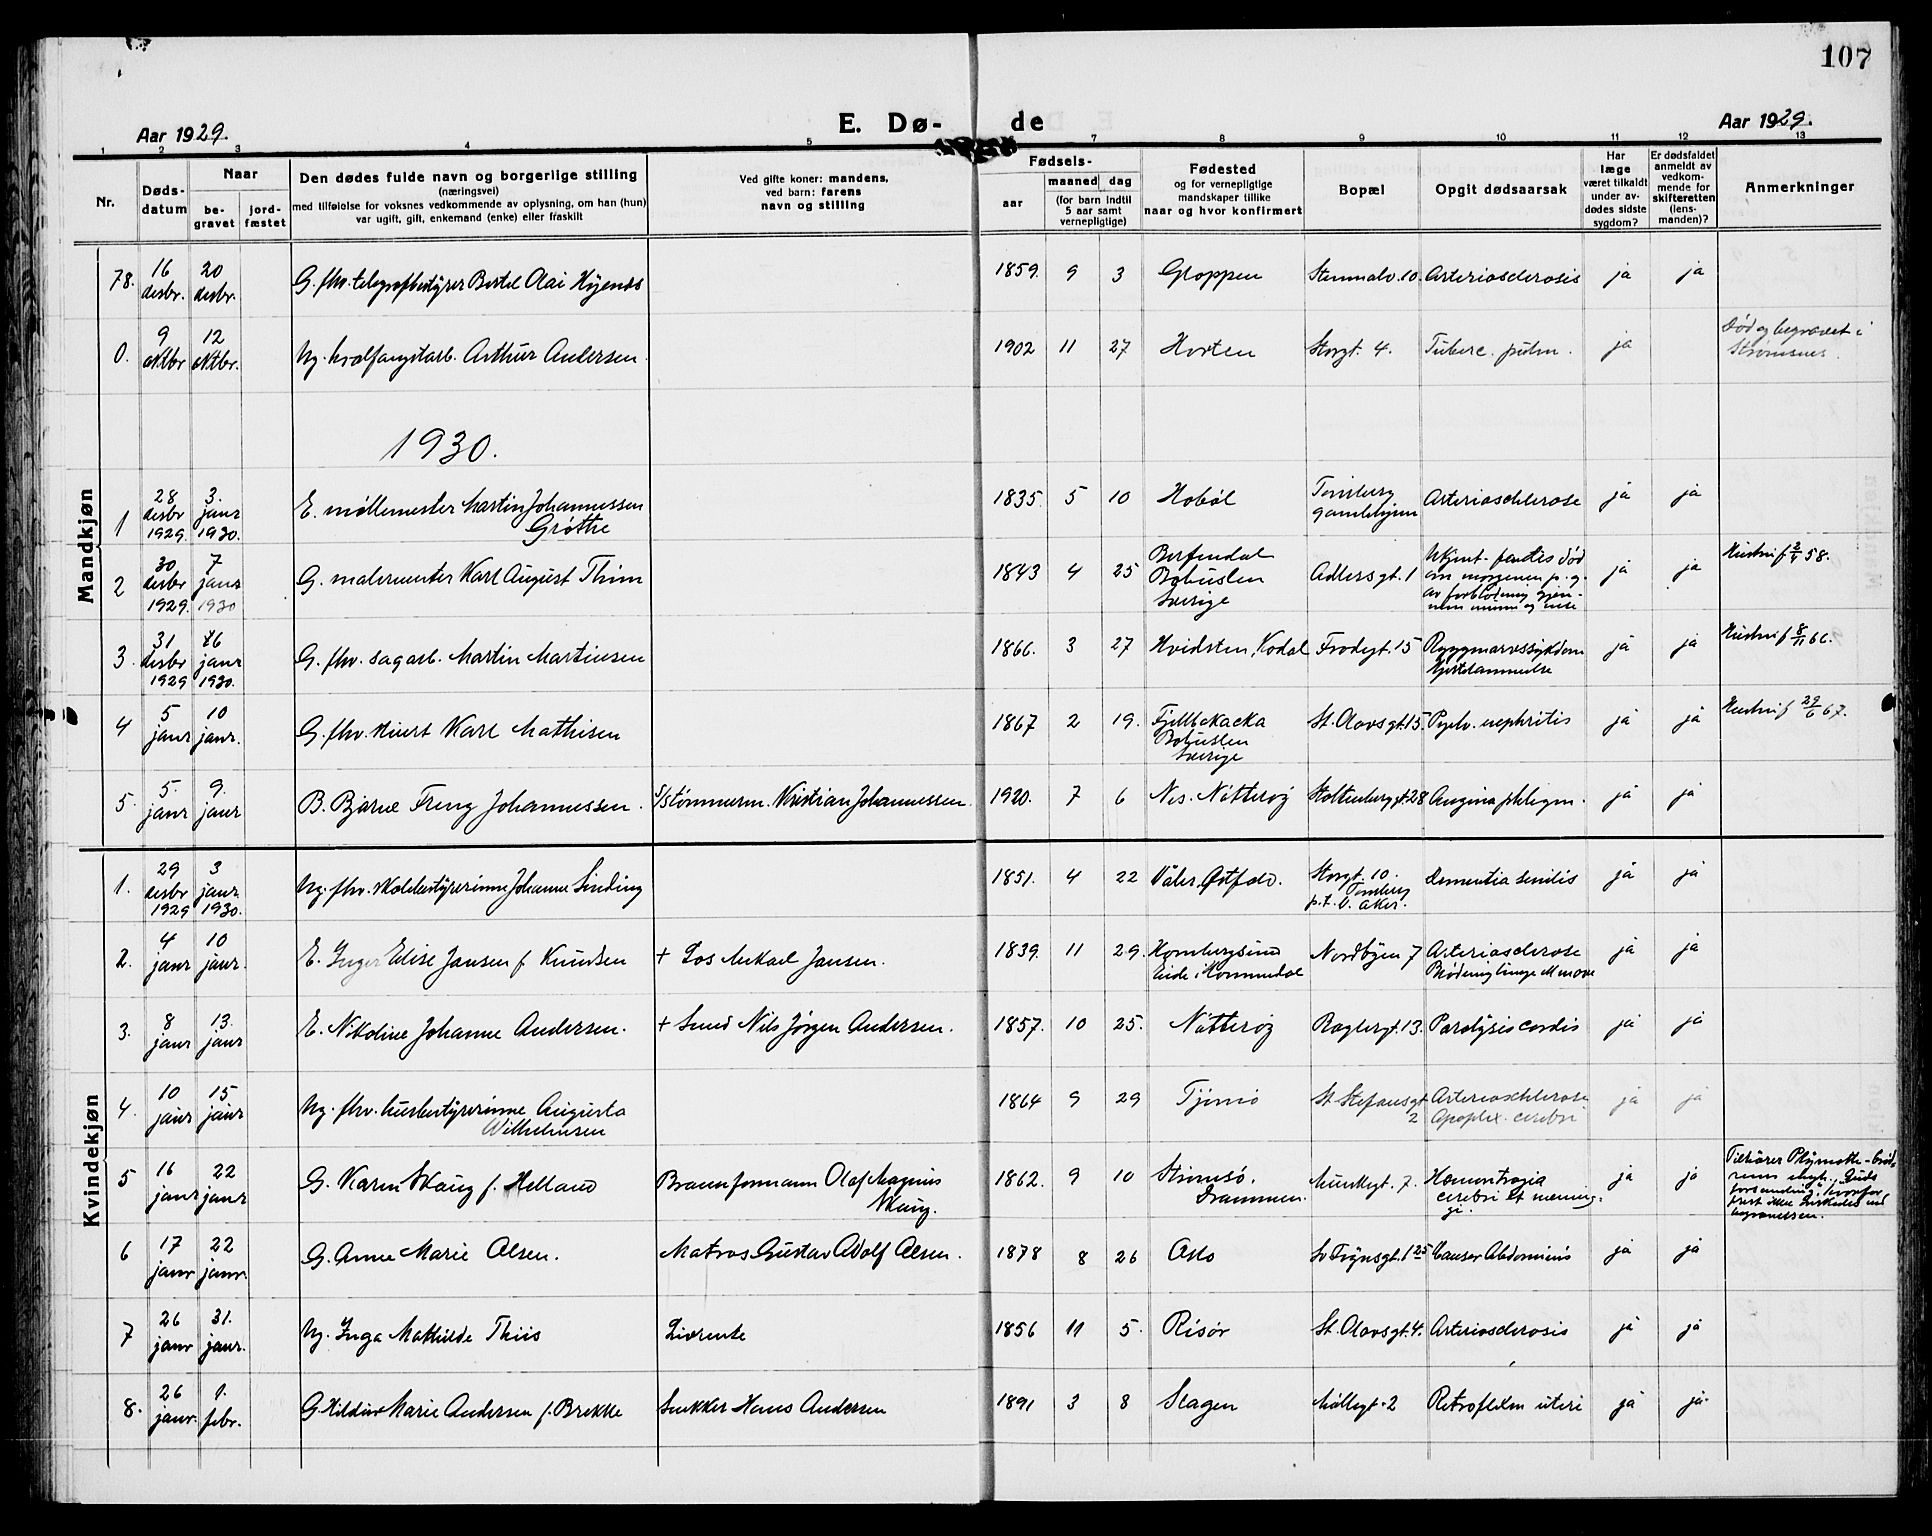 107
Aar 1929.
E. Dø- de
Aar 1929.
1 2 3 4 5 7 8 9 10 11 12 13
Nr.
Døds-
datum
Naar
be-
gravet
jord-
fæstet
Den dødes fulde navn og borgerlige stilling
(næringsvei)
med tilføielse for voksnes vedkommende av oplysning, om han (hun)
var ugift, gift, enkemand (enke) eller fraskilt
Ved gifte koner: mandens,
ved barn: farens
navn og stilling
Fødsels-
aar
maaned dag
(for barn indtil
5 aar samt
vernepligtige)
Fødested
og for vernepligtige
mandskaper tillike
naar og hvor konfirmert
Bopæl
Opgit dødsaarsak
Har
læge
været tilkaldt
under av-
dødes sidste
sygdom?
Er dødsfaldet
anmeldt av
vedkom-
mende for
skifteretten
(lens-
manden)?
Anmerkninger
Mandkjøn
78. 16 desbr. 20 desbr. G. fhv. telegrafbestyrer Bertel Olai Höyenes 1859. 9 3 Gloppen Stenmalv. 10. Arteriosclerosis ja ja
0. 9 oktbr 12 oktbr. Ug. hvalfangstarb. Arthur Andersen. 1902 11 27 Horten Storgt. 4. Tuberc. pulm. ja Död og begravet i
Strømsnes.
1930.
1 28 desbr 1929. 3. janr 1930. E. møllemester Martin Johannessen
Grøthe 1835. 5 10 Hobøl Tønsberg
gamlehjem Arteriosclerose ja ja
2 30 desbr 1929. 7 janr 1930 G. malermester Karl August Thim 1843 4 25 Berfendal
Bohuslen
Sverige Adlersgt. 1 Ukjent. fandtes død
om morgenen p. g.
av forblødning gjen-
nem munn og nese ja ja Hustru f 2/4 58.
3. 31 desbr 1929 6 janr 1930. G. fhv. sagarb. Martin Martinsen 1866. 3 27 Hvidsten, Kodal Frodegt. 15 Ryggmarvssykdom
Hjertelammelse ja ja Hustru f 8/11 66.
4 5 janr 10 janr. G. fhv. Karl Mathisen 1867 2 19. Fjellbekacka
Bohuslen
Sverige St. Olavsgt. 15. Pyelo. nephritis ja ja Hustru f 29/6 67.
5. 5. janr 9. janr B. Bjarne Freng Johannessen. S/tömmerm. Kristian Johannessen. 1920. 7 6 Nes. Nötteröy Stoltenberggt. 28 Angina phlegm. ja ja
Kvindekjøn
1. 29 desbr 1929 3 janr 1930. Ug. fhv. skolebestyrerinne Johanne Sinding 1851. 4 22 Våler, Østfold. Storgt. 10.
Tønsberg
p.t. V. Aker. Dementia senilis ja ja
2. 4 janr 10 janr. E. Inger Elise Jansen f. Knudsen + Los Mikael Jansen. 1839. 11 29. Hombergsund
Eide i Hommedal Nordbyen 7 Arteriosclerose
ja ja
3. 8 janr 13. janr E. Nikoline Johanne Andersen. + Smed Nils Jørgen Andersen. 1857. 10 25. Nötteröy Baglergt. 13. Paralysis cordis ja ja
4. 10 janr 15 janr Ug. fhv. husbestyrerinne Augusta
Wilhelmsen 1864 9 29 Tjömö St Stefansgt
2 Arteriosclerose
Apoplex. cerebri ja ja
5 16 janr 22 janr G. Karen Skaug f. Helland Brannformann Olaf Magnus
Skaug. 1862. 9 10 Strømsö.
Drammen. Munkegt. 7. Hæmorrhagia
cerebri et mening-
gi. ja ja Tilhører Plymotte-bröd-
renes Guds
forsamling, hvorfor
prest ikke ved
begravelsen.
6 17 janr 22 janr. G. Anne Marie Olsen. Matros Gustav Adolf Olsen. 1878 8 26 Oslo Sv Föynsgt. 125 Cancer Abdominis ja ja
7 26 janr 31. janr. Ug. Inga Mathilde Thiis Livrente 1856 11 5. Risör St. Olavsgt. 4. Arteriosclerosis ja ja
8. 26 janr. 1. febr. G. Hildur Marie Andersen f. Brekke Snekker Hans Andersen 1891 3 8 Slagen Möllegt. 2 Retroflekn uteri ja ja